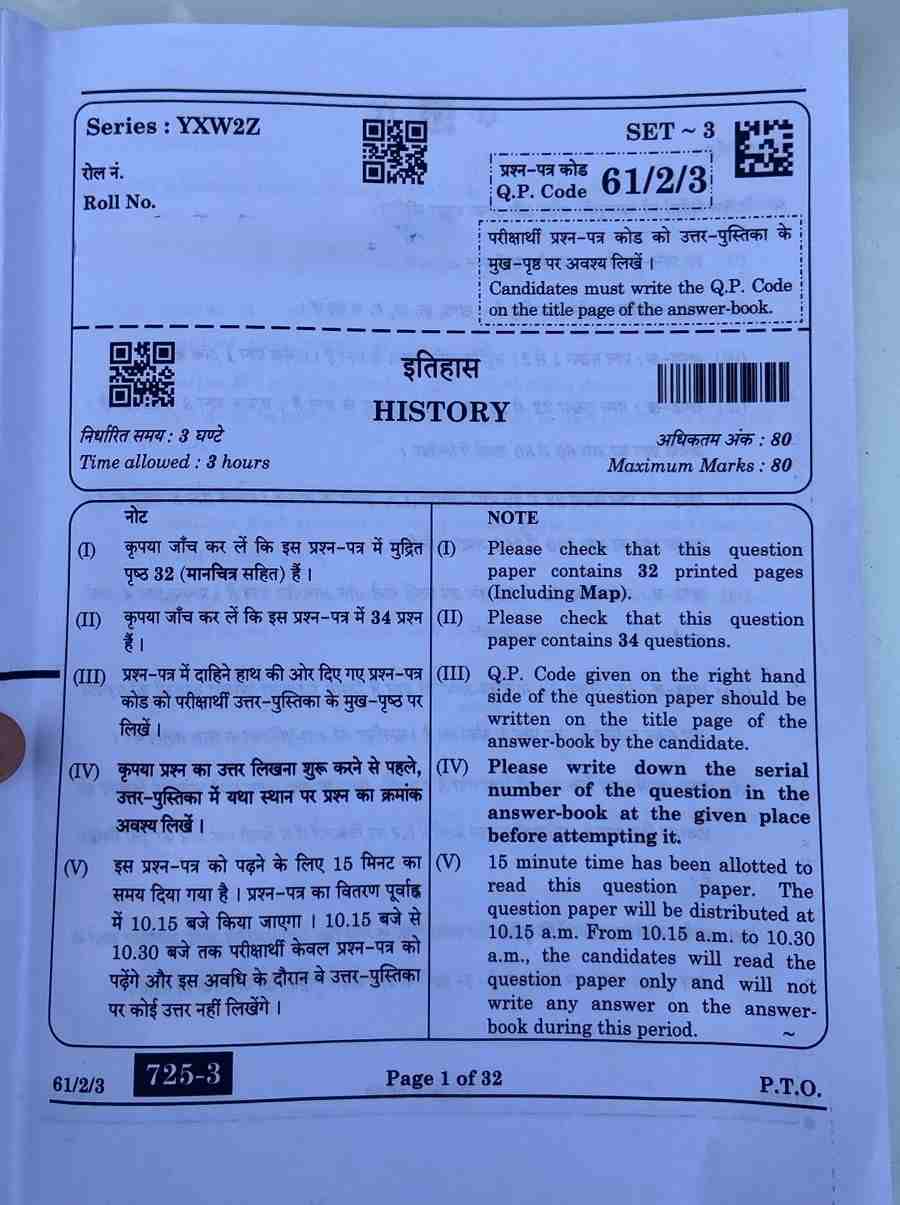 Series : YXW2Z
SET ~ 3
रोल नं.
Roll No.
प्रश्न-पत्र कोड
Q.P. Code 61/2/3
परीक्षार्थी प्रश्न-पत्र कोड को उत्तर-पुस्तिका के
मुख-पृष्ठ पर अवश्य लिखें ।
Candidates must write the Q.P. Code
on the title page of the answer-book.
इतिहास
HISTORY
निर्धारित समय : 3 घण्टे
Time allowed : 3 hours
अधिकतम अंक : 80
Maximum Marks : 80
नोट
(I) कृपया जाँच कर लें कि इस प्रश्न-पत्र में मुद्रित
पृष्ठ 32 (मानचित्र सहित) हैं ।
(II) कृपया जाँच कर लें कि इस प्रश्न-पत्र में 34 प्रश्न
हैं ।
(III) प्रश्न-पत्र में दाहिने हाथ की ओर दिए गए प्रश्न-पत्र
कोड को परीक्षार्थी उत्तर-पुस्तिका के मुख-पृष्ठ पर
लिखें ।
(IV) कृपया प्रश्न का उत्तर लिखना शुरू करने से पहले,
उत्तर-पुस्तिका में यथा स्थान पर प्रश्न का क्रमांक
अवश्य लिखें ।
(V) इस प्रश्न-पत्र को पढ़ने के लिए 15 मिनट का
समय दिया गया है । प्रश्न-पत्र का वितरण पूर्वाह्न
में 10.15 बजे किया जाएगा । 10.15 बजे से
10.30 बजे तक परीक्षार्थी केवल प्रश्न-पत्र को
पढ़ेंगे और इस अवधि के दौरान वे उत्तर-पुस्तिका
पर कोई उत्तर नहीं लिखेंगे ।
NOTE
(I) Please check that this question
paper contains 32 printed pages
(Including Map).
(II) Please check that this question
paper contains 34 questions.
(III) Q.P. Code given on the right hand
side of the question paper should be
written on the title page of the
answer-book by the candidate.
(IV) Please write down the serial
number of the question in the
answer-book at the given place
before attempting it.
(V) 15 minute time has been allotted to
read this question paper. The
question paper will be distributed at
10.15 a.m. From 10.15 a.m. to 10.30
a.m., the candidates will read the
question paper only and will not
write any answer on the answer-
book during this period. ~
61/2/3
725-3
Page 1 of 32
P.T.O.